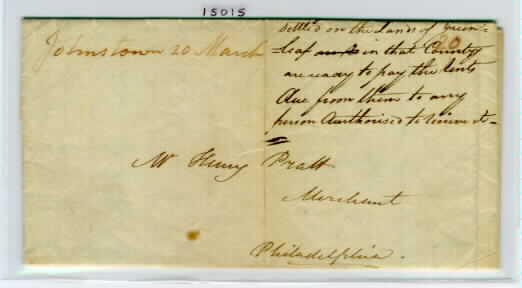 15015
settled on the Lands of Green-
Johnstown 20 March
20
-leaf in that County
are ready to pay the rents
due from them to any
person Authorised to receive it-
Mr Henry Pratt
Merchant
Philadelphia.